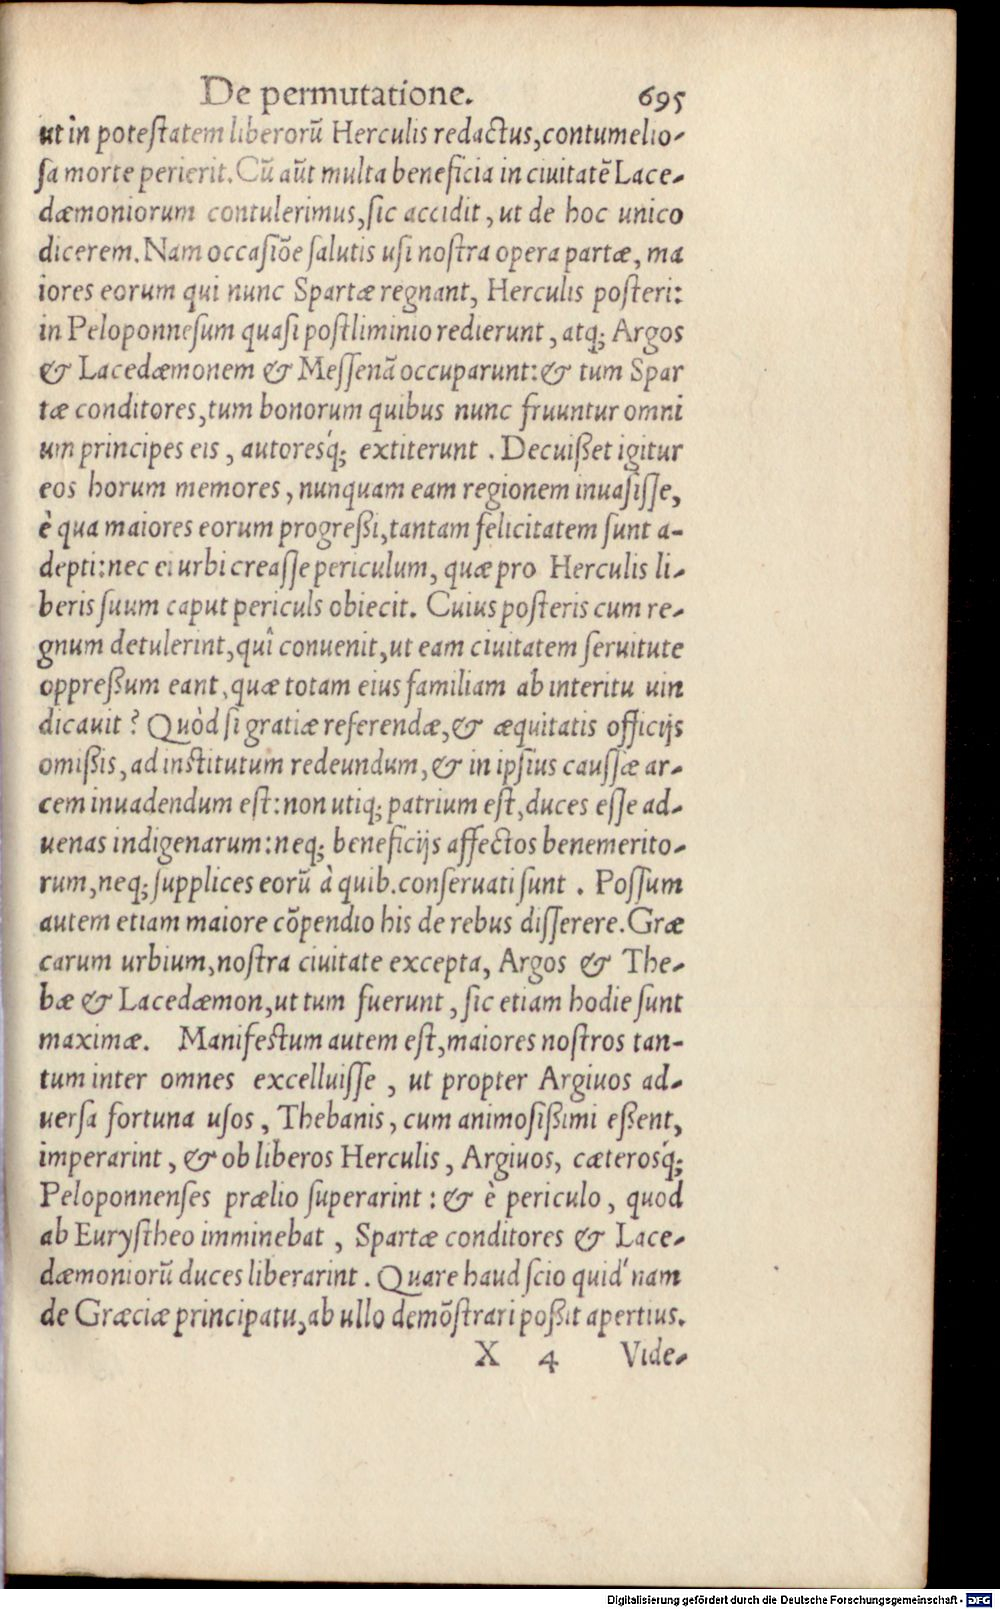 De permutatione. 695
ut in potestatem liberorū Herculis redactus, contumelio-
sa morte perierit. Cū aūt multa beneficia in ciuitatē Lace-
dæmoniorum contulerimus, sic accidit, ut de hoc unico
dicerem. Nam occasiōe salutis usi nostra opera partæ, ma
iores eorum qui nunc Spartæ regnant, Herculis posteri:
in Peloponnesum quasi postliminio redierunt, atq; Argos
& Lacedæmonem & Messenā occuparunt: & tum Spar
tæ conditores, tum bonorum quibus nunc fruuntur omni
um principes eis, autoresq́; extiterunt. Decuißet igitur
eos horum memores, nunquam eam regionem inuasisse,
è qua maiores eorum progreßi, tantam felicitatem sunt a-
depti: nec ei urbi creasse periculum, quæ pro Herculis li-
beris suum caput periculs obiecit. Cuius posteris cum re-
gnum detulerint, quî conuenit, ut eam ciuitatem seruitute
oppreßum eant, quæ totam eius familiam ab interitu uin
dicauit? Quòd si gratiæ referendæ, & æquitatis officijs
omißis, ad institutum redeundum, & in ipsius caussæ ar-
cem inuadendum est: non utiq; patrium est, duces esse ad-
uenas indigenarum: neq; beneficijs affectos benemerito-
rum, neq; supplices eorū à quib. conseruati sunt. Possum
autem etiam maiore cōpendio his de rebus disserere. Græ
carum urbium, nostra ciuitate excepta, Argos & The-
bæ & Lacedæmon, ut tum fuerunt, sic etiam hodie sunt
maximæ. Manifectum autem est, maiores nostros tan-
tum inter omnes excelluisse, ut propter Argiuos ad-
uersa fortuna usos, Thebanis, cum animosißimi eßent,
imperarint, & ob liberos Herculis, Argiuos, cæterosq́;
Peloponnenses prælio superarint: & è periculo, quod
ab Eurystheo imminebat, Spartæ conditores & Lace-
dæmoniorū duces liberarint. Quare haud scio quid'nam
de Græciæ principatu, ab ullo demōstrari poßit apertius.
X 4 Vide-
Digitalisierung gefördert durch die Deutsche Forschungsgemeinschaft - DFG